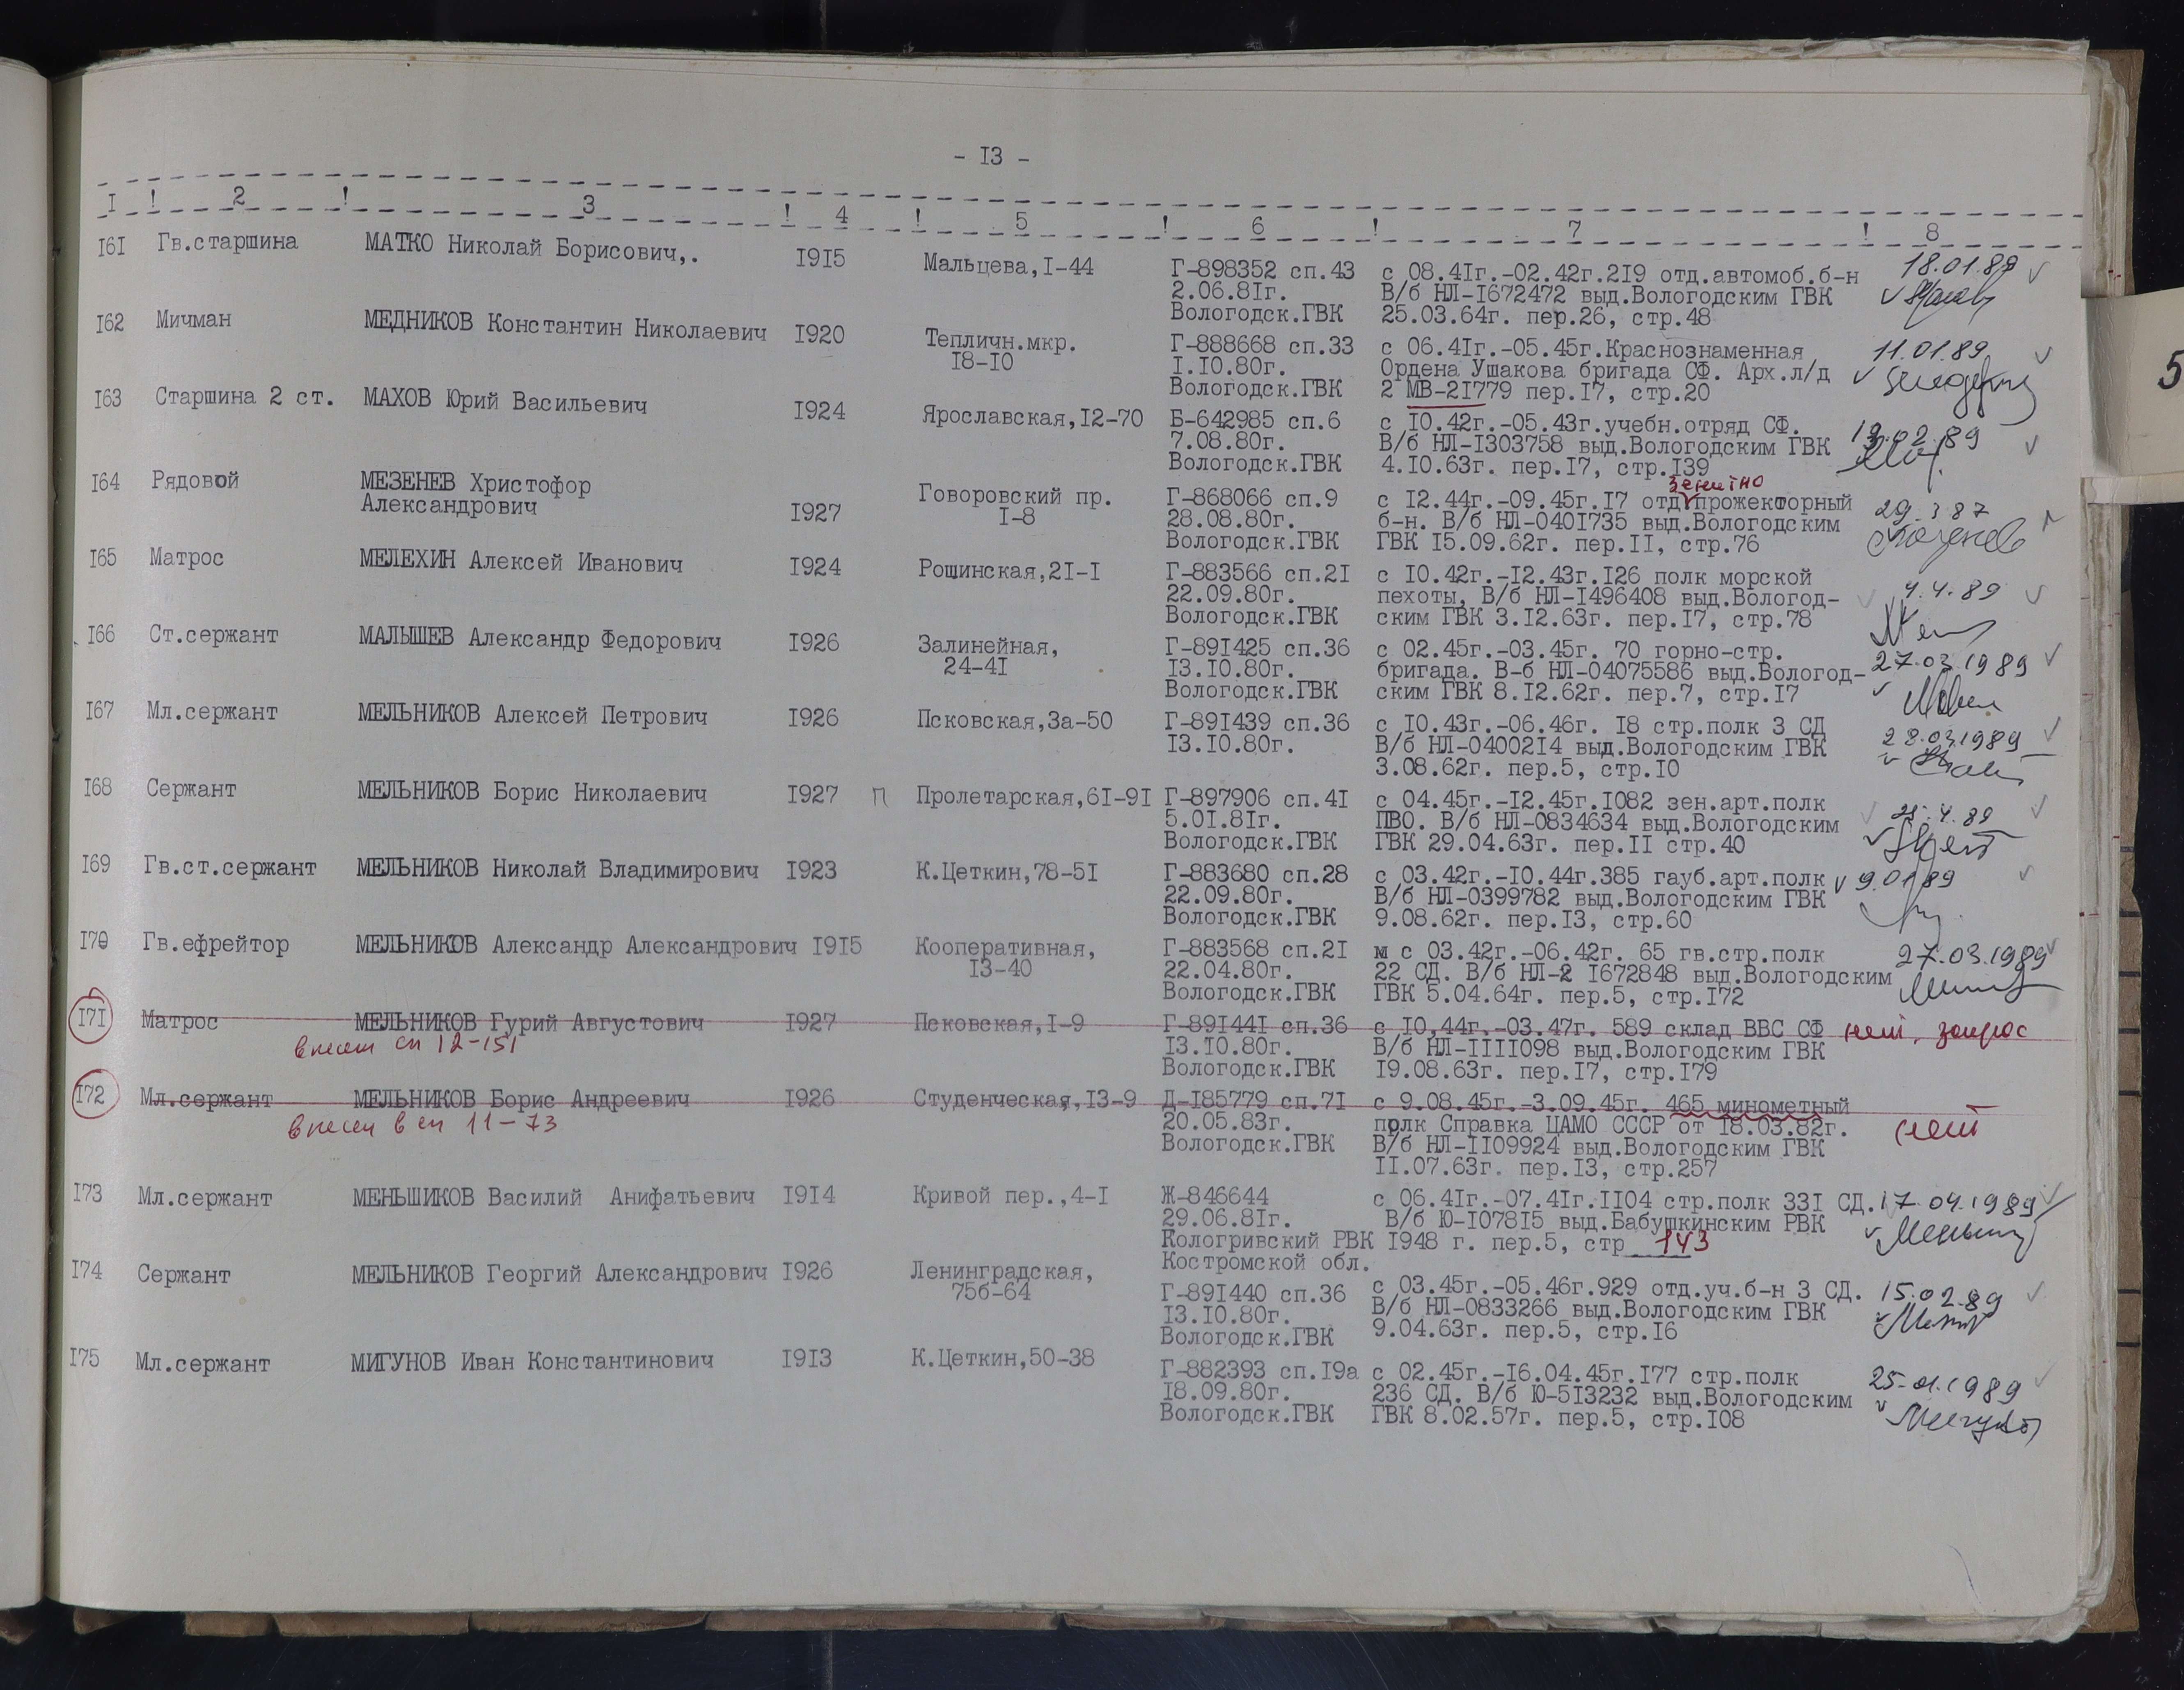 - I3 -
I ! 2 ! 3 ! 4 ! 5 ! 6 ! 7 ! 8
I6I Гв.старшина МАТКО Николай Борисович,. I9I5 Мальцева,I-44 Г-898352 сп.43 с 08.4Iг.-02.42г.2I9 отд.автомоб.б-н 18.01.89
2.06.8Iг. В/б НЛ-I672472 выд.Вологодским ГВК
Вологодск.ГВК 25.03.64г. пер.26, стр.48
I62 Мичман МЕДНИКОВ Константин Николаевич I920 Тепличн.мкр. Г-888668 сп.33 с 06.4Iг.-05.45г.Краснознаменная 11.01.89
I8-I0 I.I0.80г. Ордена Ушакова бригада СФ. Арх.л/д
Вологодск.ГВК 2 МВ-2I779 пер.I7, стр.20
I63 Старшина 2 ст. МАХОВ Юрий Васильевич I924 Ярославская,I2-70 Б-642985 сп.6 с I0.42г.-05.43г.учебн.отряд СФ.
7.08.80г. В/б НЛ-I303758 выд.Вологодским ГВК 19.02.89
Вологодск.ГВК 4.I0.63г. пер.I7, стр.I39
зенитно
I64 Рядовой МЕЗЕНЕВ Христофор Говоровский пр. Г-868066 сп.9 с I2.44г.-09.45г.I7 отд прожекторный
Александрович I927 I-8 28.08.80г. б-н. В/б НЛ-040I735 выд.Вологодским
Вологодск.ГВК ГВК I5.09.62г. пер.II, стр.76
I65 Матрос МЕЛЕХИН Алексей Иванович I924 Рощинская,2I-I Г-883566 сп.2I с I0.42г.-I2.43г.I26 полк морской
22.09.80г. пехоты, В/б НЛ-I496408 выд.Вологод- 4.4.89
Вологодск.ГВК ским ГВК 3.I2.63г. пер.I7, стр.78
I66 Ст.сержант МАЛЫШЕВ Александр Федорович I926 Залинейная, Г-89I425 сп.36 с 02.45г.-03.45г. 70 горно-стр.
24-4I I3.I0.80г. бригада. В-б НЛ-04075586 выд.Вологод- 27.03.1989
Вологодск.ГВК ским ГВК 8.I2.62г. пер.7, стр.I7
I67 Мл.сержант МЕЛЬНИКОВ Алексей Петрович I926 Псковская,3а-50 Г-89I439 сп.36 с I0.43г.-06.46г. I8 стр.полк 3 СД
I3.I0.80г. В/б НЛ-04002I4 выд.Вологодским ГВК 28.03.1989
3.08.62г. пер.5, стр.I0
I68 Сержант МЕЛЬНИКОВ Борис Николаевич I927 П Пролетарская,6I-9I Г-897906 сп.4I с 04.45г.-I2.45г.I082 зен.арт.полк
5.0I.8Iг. ПВО. В/б НЛ-0834634 выд.Вологодским
Вологодск.ГВК ГВК 29.04.63г. пер.II стр.40
I69 Гв.ст.сержант МЕЛЬНИКОВ Николай Владимирович I923 К.Цеткин,78-5I Г-883680 сп.28 с 03.42г.-I0.44г.385 гауб.арт.полк 9.01.89
22.09.80г. В/б НЛ-0399782 выд.Вологодским ГВК
Вологодск.ГВК 9.08.62г. пер.I3, стр.60
I70 Гв.ефрейтор МЕЛЬНИКОВ Александр Александрович I9I5 Кооперативная, Г-883568 сп.2I с 03.42г.-06.42г. 65 гв.стр.полк 27.03.1989
I3-40 22.04.80г. 22 СД. В/б НЛ-2 I672848 выд.Вологодским
Вологодск.ГВК ГВК 5.04.64г. пер.5, стр.I72
I7I Матрос МЕЛЬНИКОВ Гурий Августович I927 Псковская,I-9 Г-89I44I сп.36 с I0,44г.-03.47г. 589 склад ВВС СФ нет, запрос
внесен сп 12-151 I3.I0.80г. В/б НЛ-IIII098 выд.Вологодским ГВК
Вологодск.ГВК I9.08.63г. пер.I7, стр.I79
I72 Мл.сержант МЕЛЬНИКОВ Борис Андреевич I926 Студенческая,I3-9 Д-I85779 сп.7I с 9.08.45г.-3.09.45г. 465 минометный
внесен в сп 11-73 20.05.83г. полк Справка ЦАМО СССР от I8.03.82г. нет
Вологодск.ГВК В/б НЛ-II09924 выд.Вологодским ГВК
II.07.63г. пер.I3, стр.257
I73 Мл.сержант МЕНЬШИКОВ Василий Анифатьевич I9I4 Кривой пер.,4-I Ж-846644 с 06.4Iг.-07.4Iг.II04 стр.полк 33I СД. 17.04.1989
29.06.8Iг. В/б Ю-I078I5 выд.Бабушкинским РВК
Кологривский РВК I948 г. пер.5, стр 143
Костромской обл.
I74 Сержант МЕЛЬНИКОВ Георгий Александрович I926 Ленинградская, Г-89I440 сп.36 с 03.45г.-05.46г.929 отд.уч.б-н 3 СД. 15.02.89
75б-64 I3.I0.80г. В/б НЛ-0833266 выд.Вологодским ГВК
Вологодск.ГВК 9.04.63г. пер.5, стр.I6
I75 Мл.сержант МИГУНОВ Иван Константинович I9I3 К.Цеткин,50-38 Г-882393 сп.I9а с 02.45г.-I6.04.45г.I77 стр.полк 25.01.1989
I8.09.80г. 236 СД. В/б Ю-5I3232 выд.Вологодским
Вологодск.ГВК ГВК 8.02.57г. пер.5, стр.I08
5